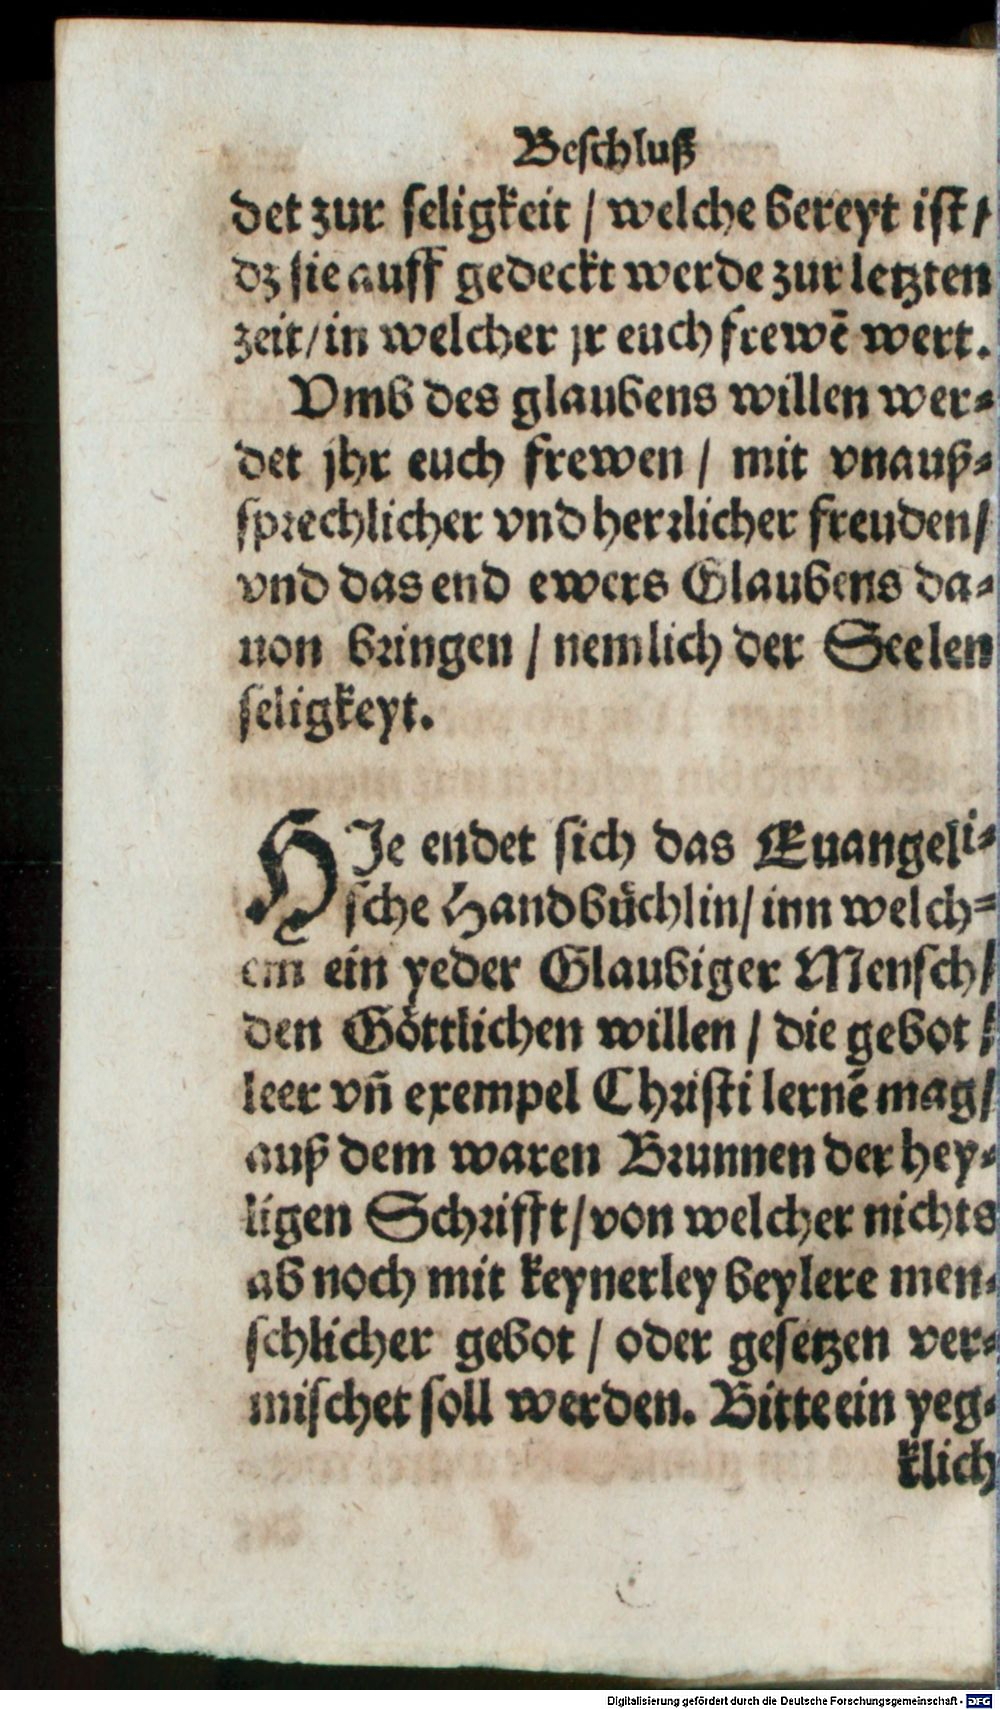 Beschluß
det zur seligkeit / welche bereyt ist /
dz sie auff gedeckt werde zur letzten
zeit / in welcher jr euch frewē wert.
Vmb des glaubens willen wer⸗
det jhr euch frewen / mit vnauß⸗
sprechlicher vnd herꝛlicher freuden /
vnd das end ewers Glaubens da⸗
uon bꝛingen / nemlich der Seelen
seligkeyt.
HJe endet sich das Euangeli⸗
sche Handbuͤchlin / inn welch⸗
em ein yeder Glaubiger Mensch /
den Goͤttlichen willen / die gebot /
leer vñ exempel Chꝛisti lernē mag /
auß dem waren Bꝛunnen der hey⸗
ligen Schꝛifft / von welcher nichts
ab noch mit keynerley beylere men⸗
schlicher gebot / oder gesetzen ver⸗
mischet soll werden. Bitte ein yeg⸗
klich
Digitalisierung gefördert durch die Deutsche Forschungsgemeinschaft - DFG